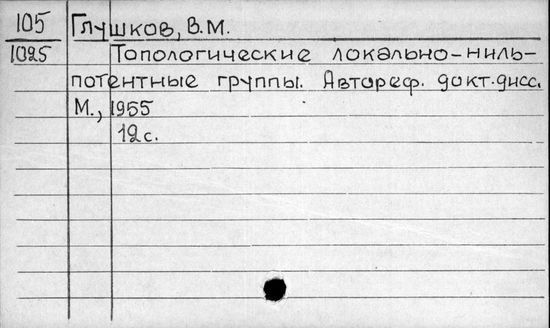 105 Глушков, В.М.
1025 Топологические локально-ниль-
потентные группы. Автореф. докт. дисс.
М., 1955
12 с.